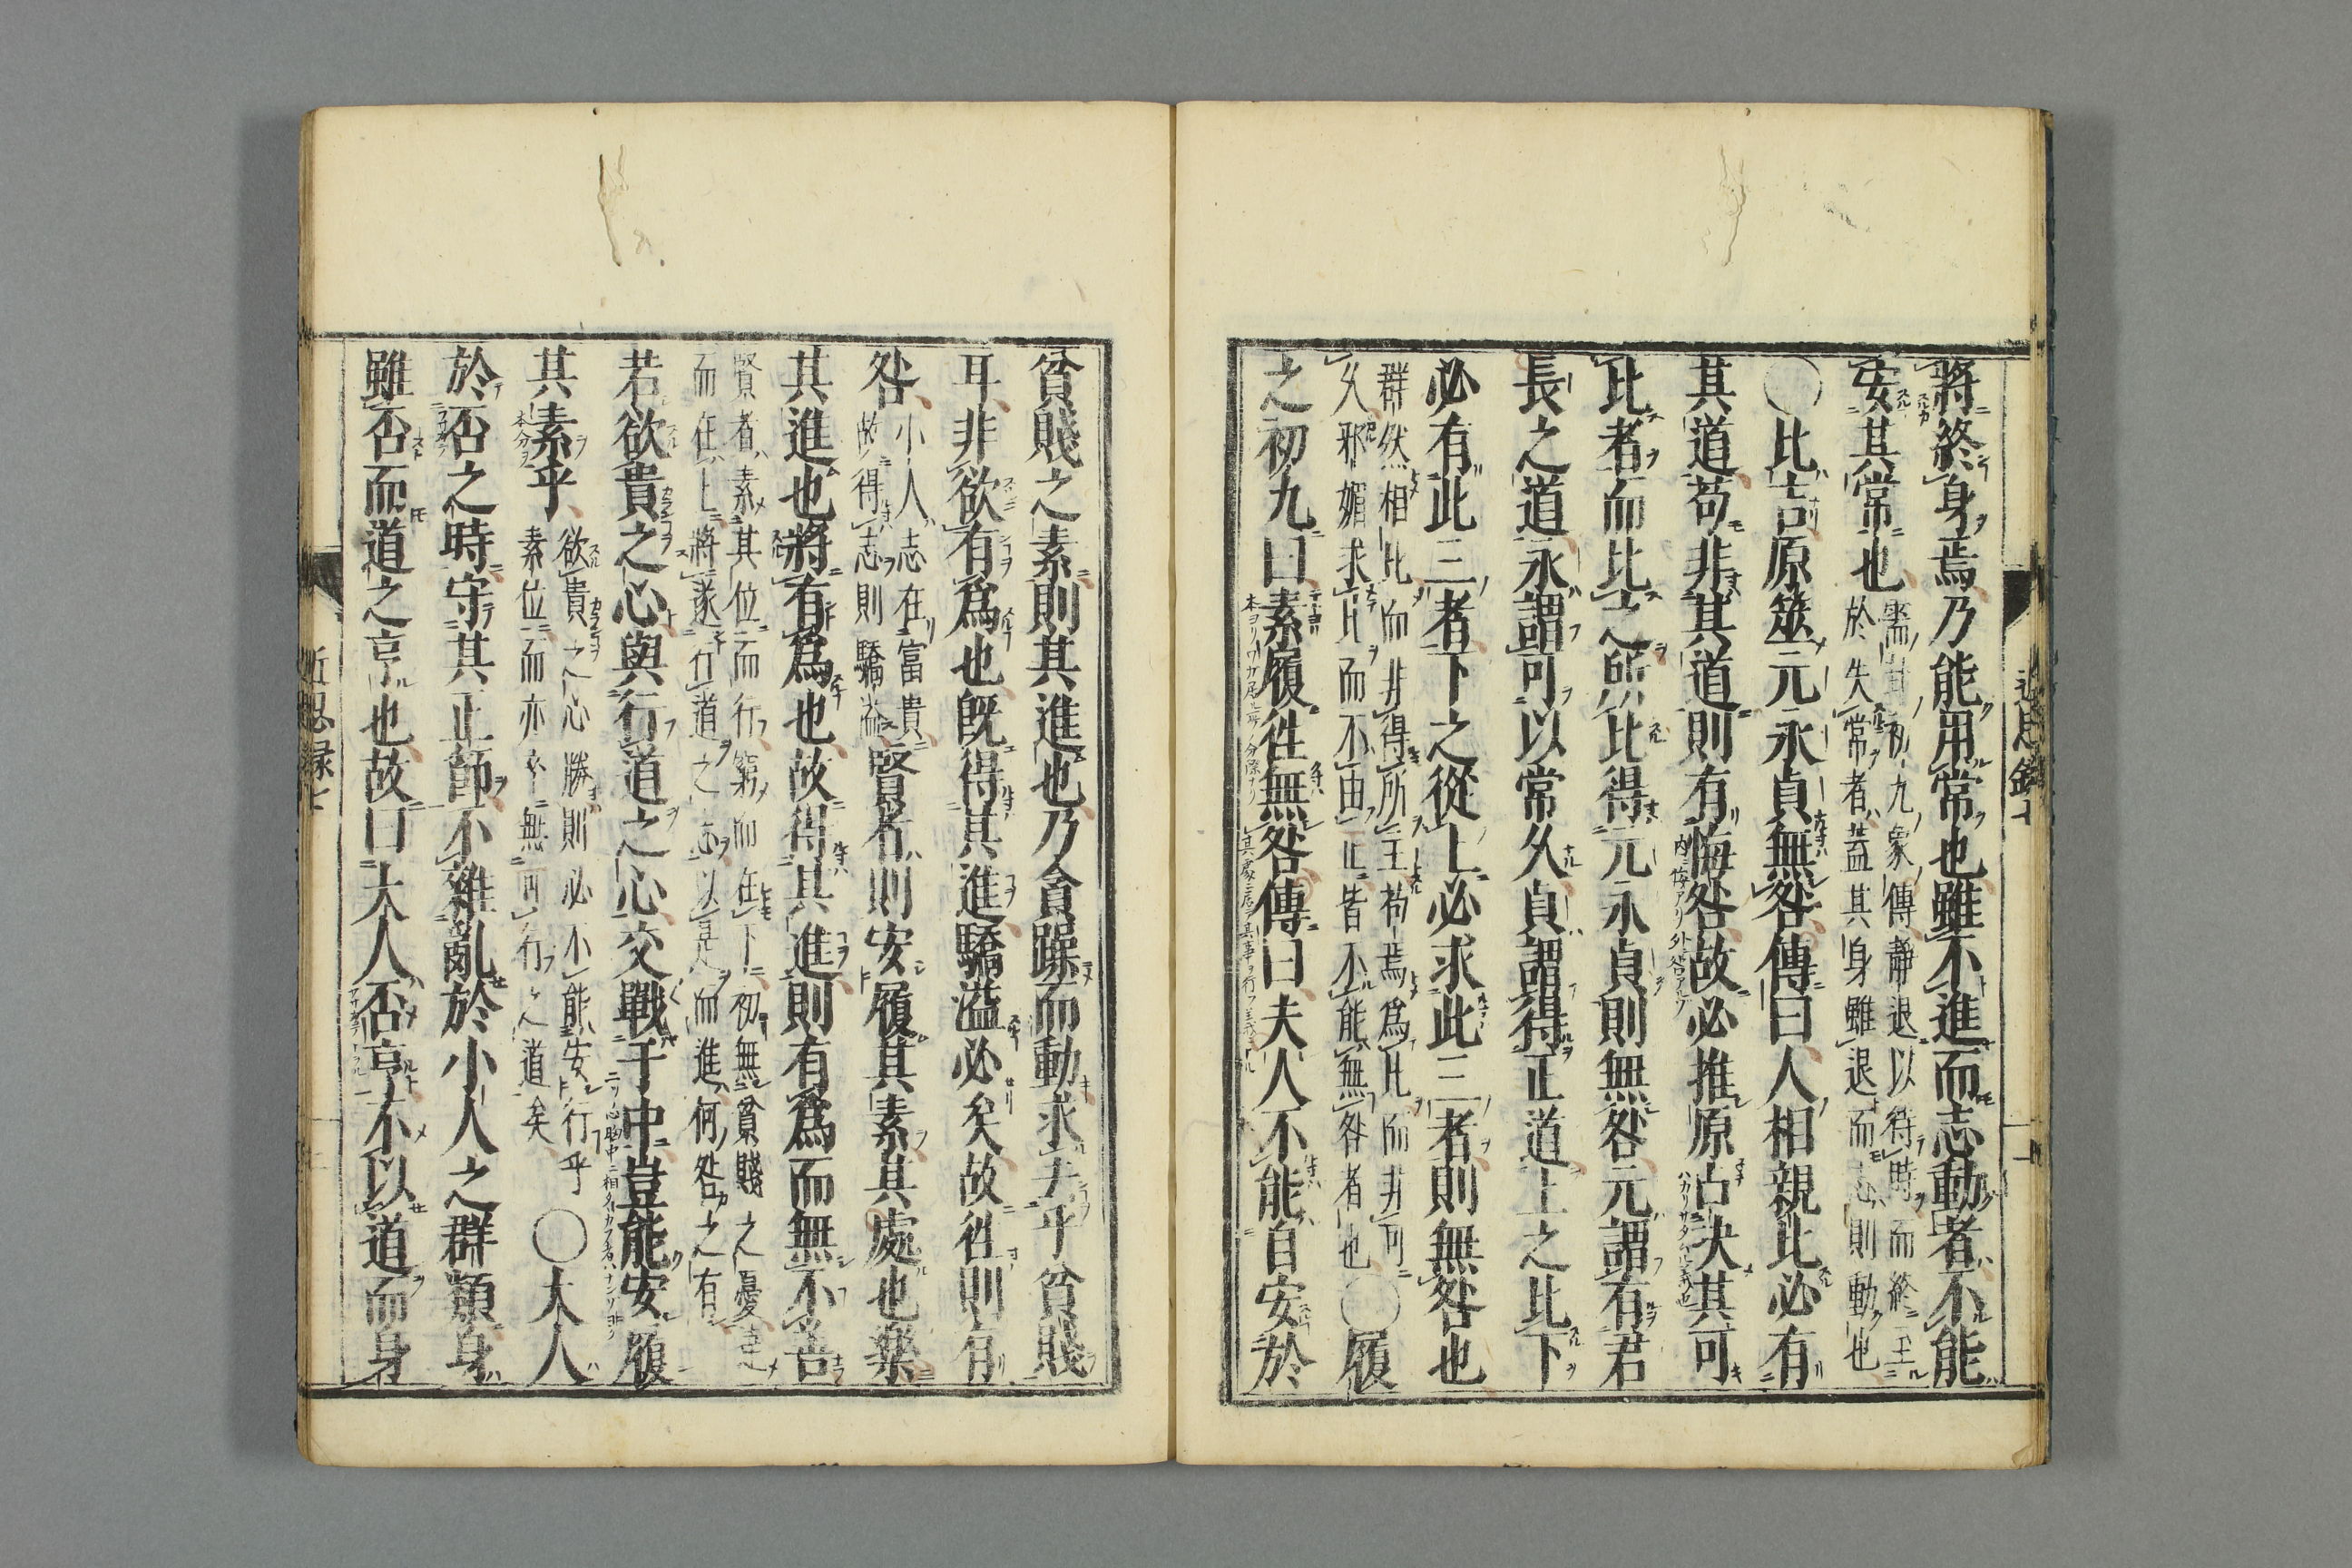 將終身焉乃能用常也雖不進而志動者不能
安其常也
需卦初九象傳靜退以待時而終至
於失常者蓋其身雖退而志則動也
○比吉原筮元永貞無咎傳曰人相親比必有
其道苟非其道則有悔咎故必推原占決其可
比者而比之所比得元永貞則無咎元謂有君
長之道永謂可以常久貞謂得正道上之比下
必有此三者下之從上必求此三者則無咎也
群然相比而非得所主苟焉爲比而非可
久邪媚求比而不由正皆不能無咎者也
○履
之初九曰素履徃無咎傳曰夫人不能自安於
貧賤之素則其進也乃貪躁而動求去乎貧賤
耳非欲有爲也旣得其進驕溢必矣故徃則有
咎
小人志在富貴
故得志則驕溢
賢者則安履其素其處也樂
其進也將有爲也故得其進則有爲而無不善
賢者素其位而行窮而在下初無貧賤之憂達
而在上將遂行道之志以是而進何咎之有
若欲貴之心與行道之心交戰于中豈能安履
其素乎
欲貴之心勝則必不能安行乎
素位而亦卒無可行之道矣
○大人
於否之時守其正節不雜亂於小人之群類身
雖否而道之亨也故曰大人否亨不以道而身
近思録七